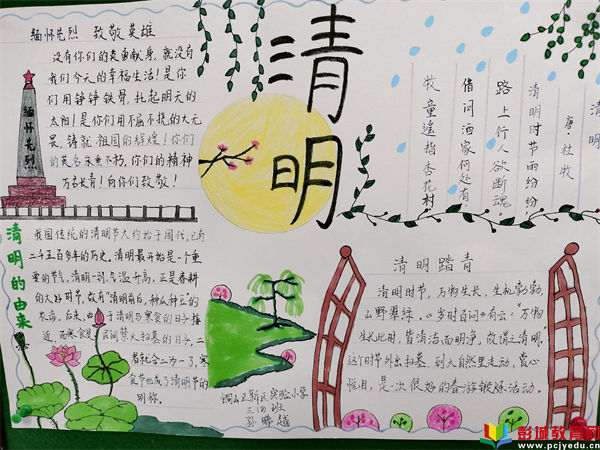 缅怀先烈 致敬英雄
没有你们的英勇献身,就没有
我们今天的幸福生活!是你
们用铮铮铁骨,托起明天的
太阳!是你们用不屈不挠的大无
畏,铸就祖国的辉煌!你们
的英名永垂不朽,你们的精神
万古长青!向你们致敬!
缅怀先烈
清明
清明
唐 杜牧
清明时节雨纷纷
路上行人欲断魂。
借问酒家何处有
牧童遥指杏花村
清明的由来
我国传统的清明节大约始于周代,已有
二千五百多年的历史,清明最开始是一个重
要的节气,清明一到,气温升高,正是春耕
的大好时节,故有"清明前后,种瓜种豆"的
农谚。后来,由于清明与寒食的日子接
近,而寒食是民间禁火扫墓的日子,二
者就合二为一了,寒
食节也成了清明节的
别称。
清明踏青
清明时节,万物生长,生机勃勃,
山野翠绿,《岁时百问》有云:"万物
生长此时,皆清洁而明净,故谓之清明。"
这个时节外出扫墓,到大自然里走动,赏心
悦目,是一次很好的春游锻炼活动。
铜山区新区实验小学
三(四)班
孙晞越
彭城教育网
www.pcjyedu.cn